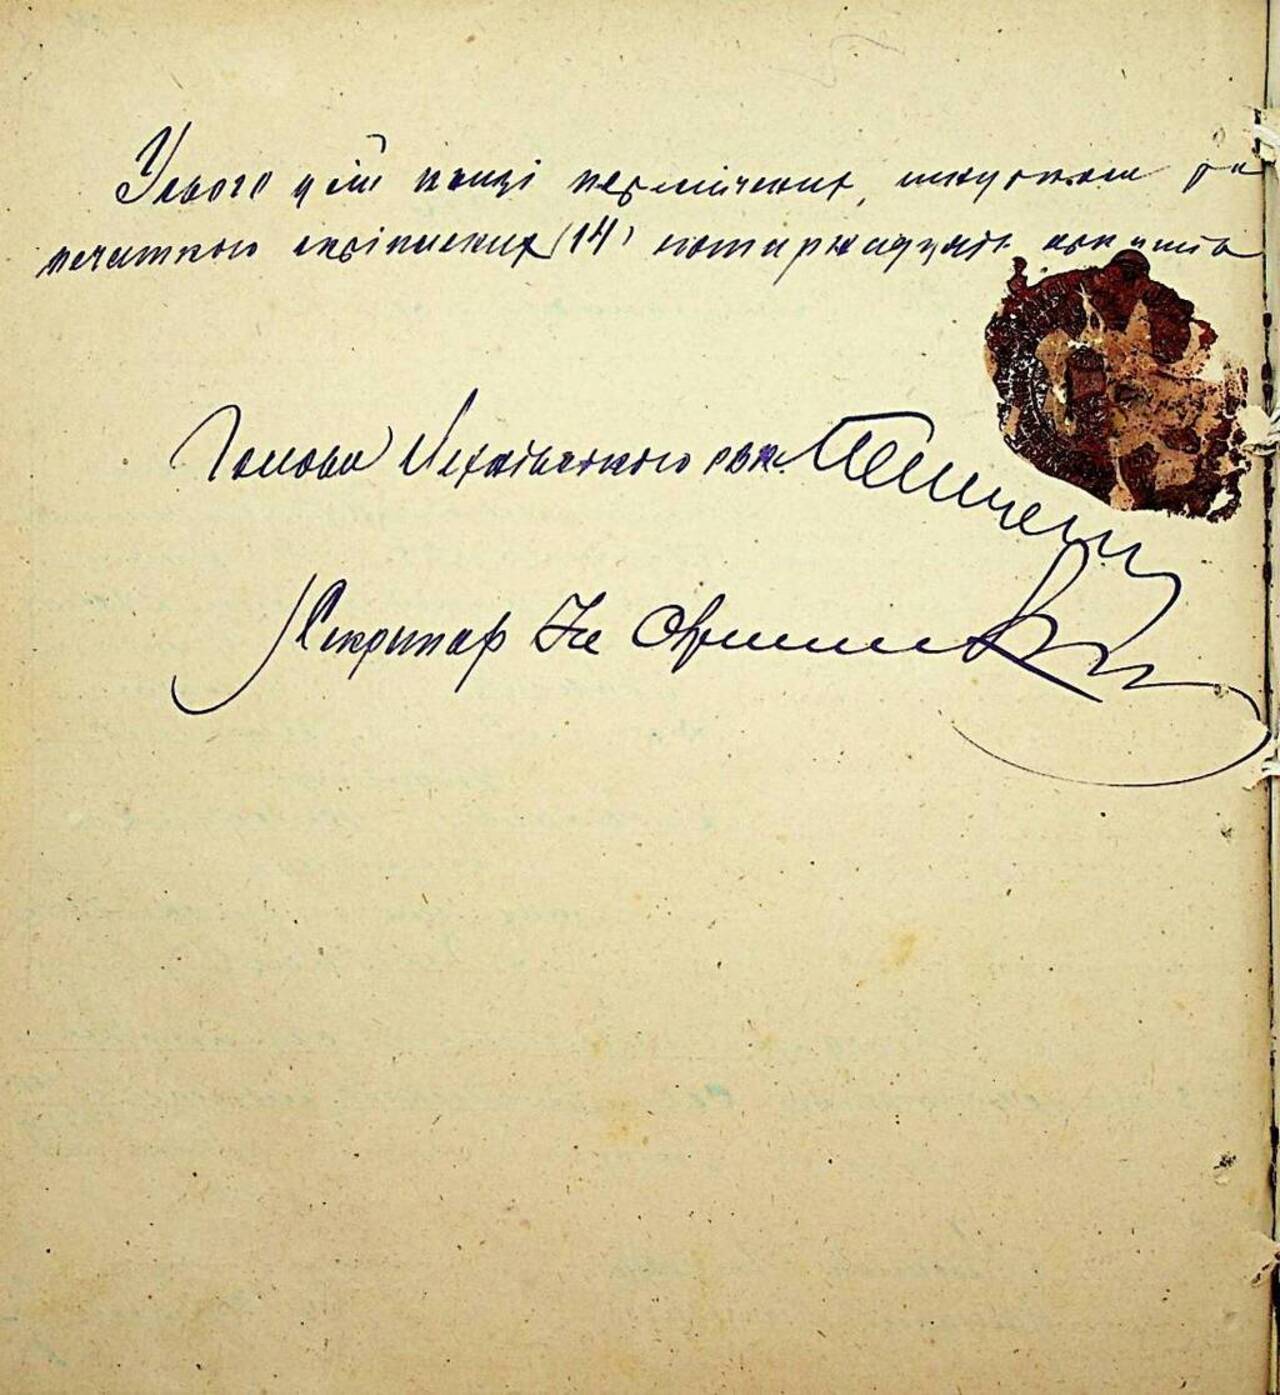 Усього у цій книзі перемічених, шнурком та
печаткою скріплених (14) чотирнадцять аркушів
Голова Михайлівского РВК.
Секретар